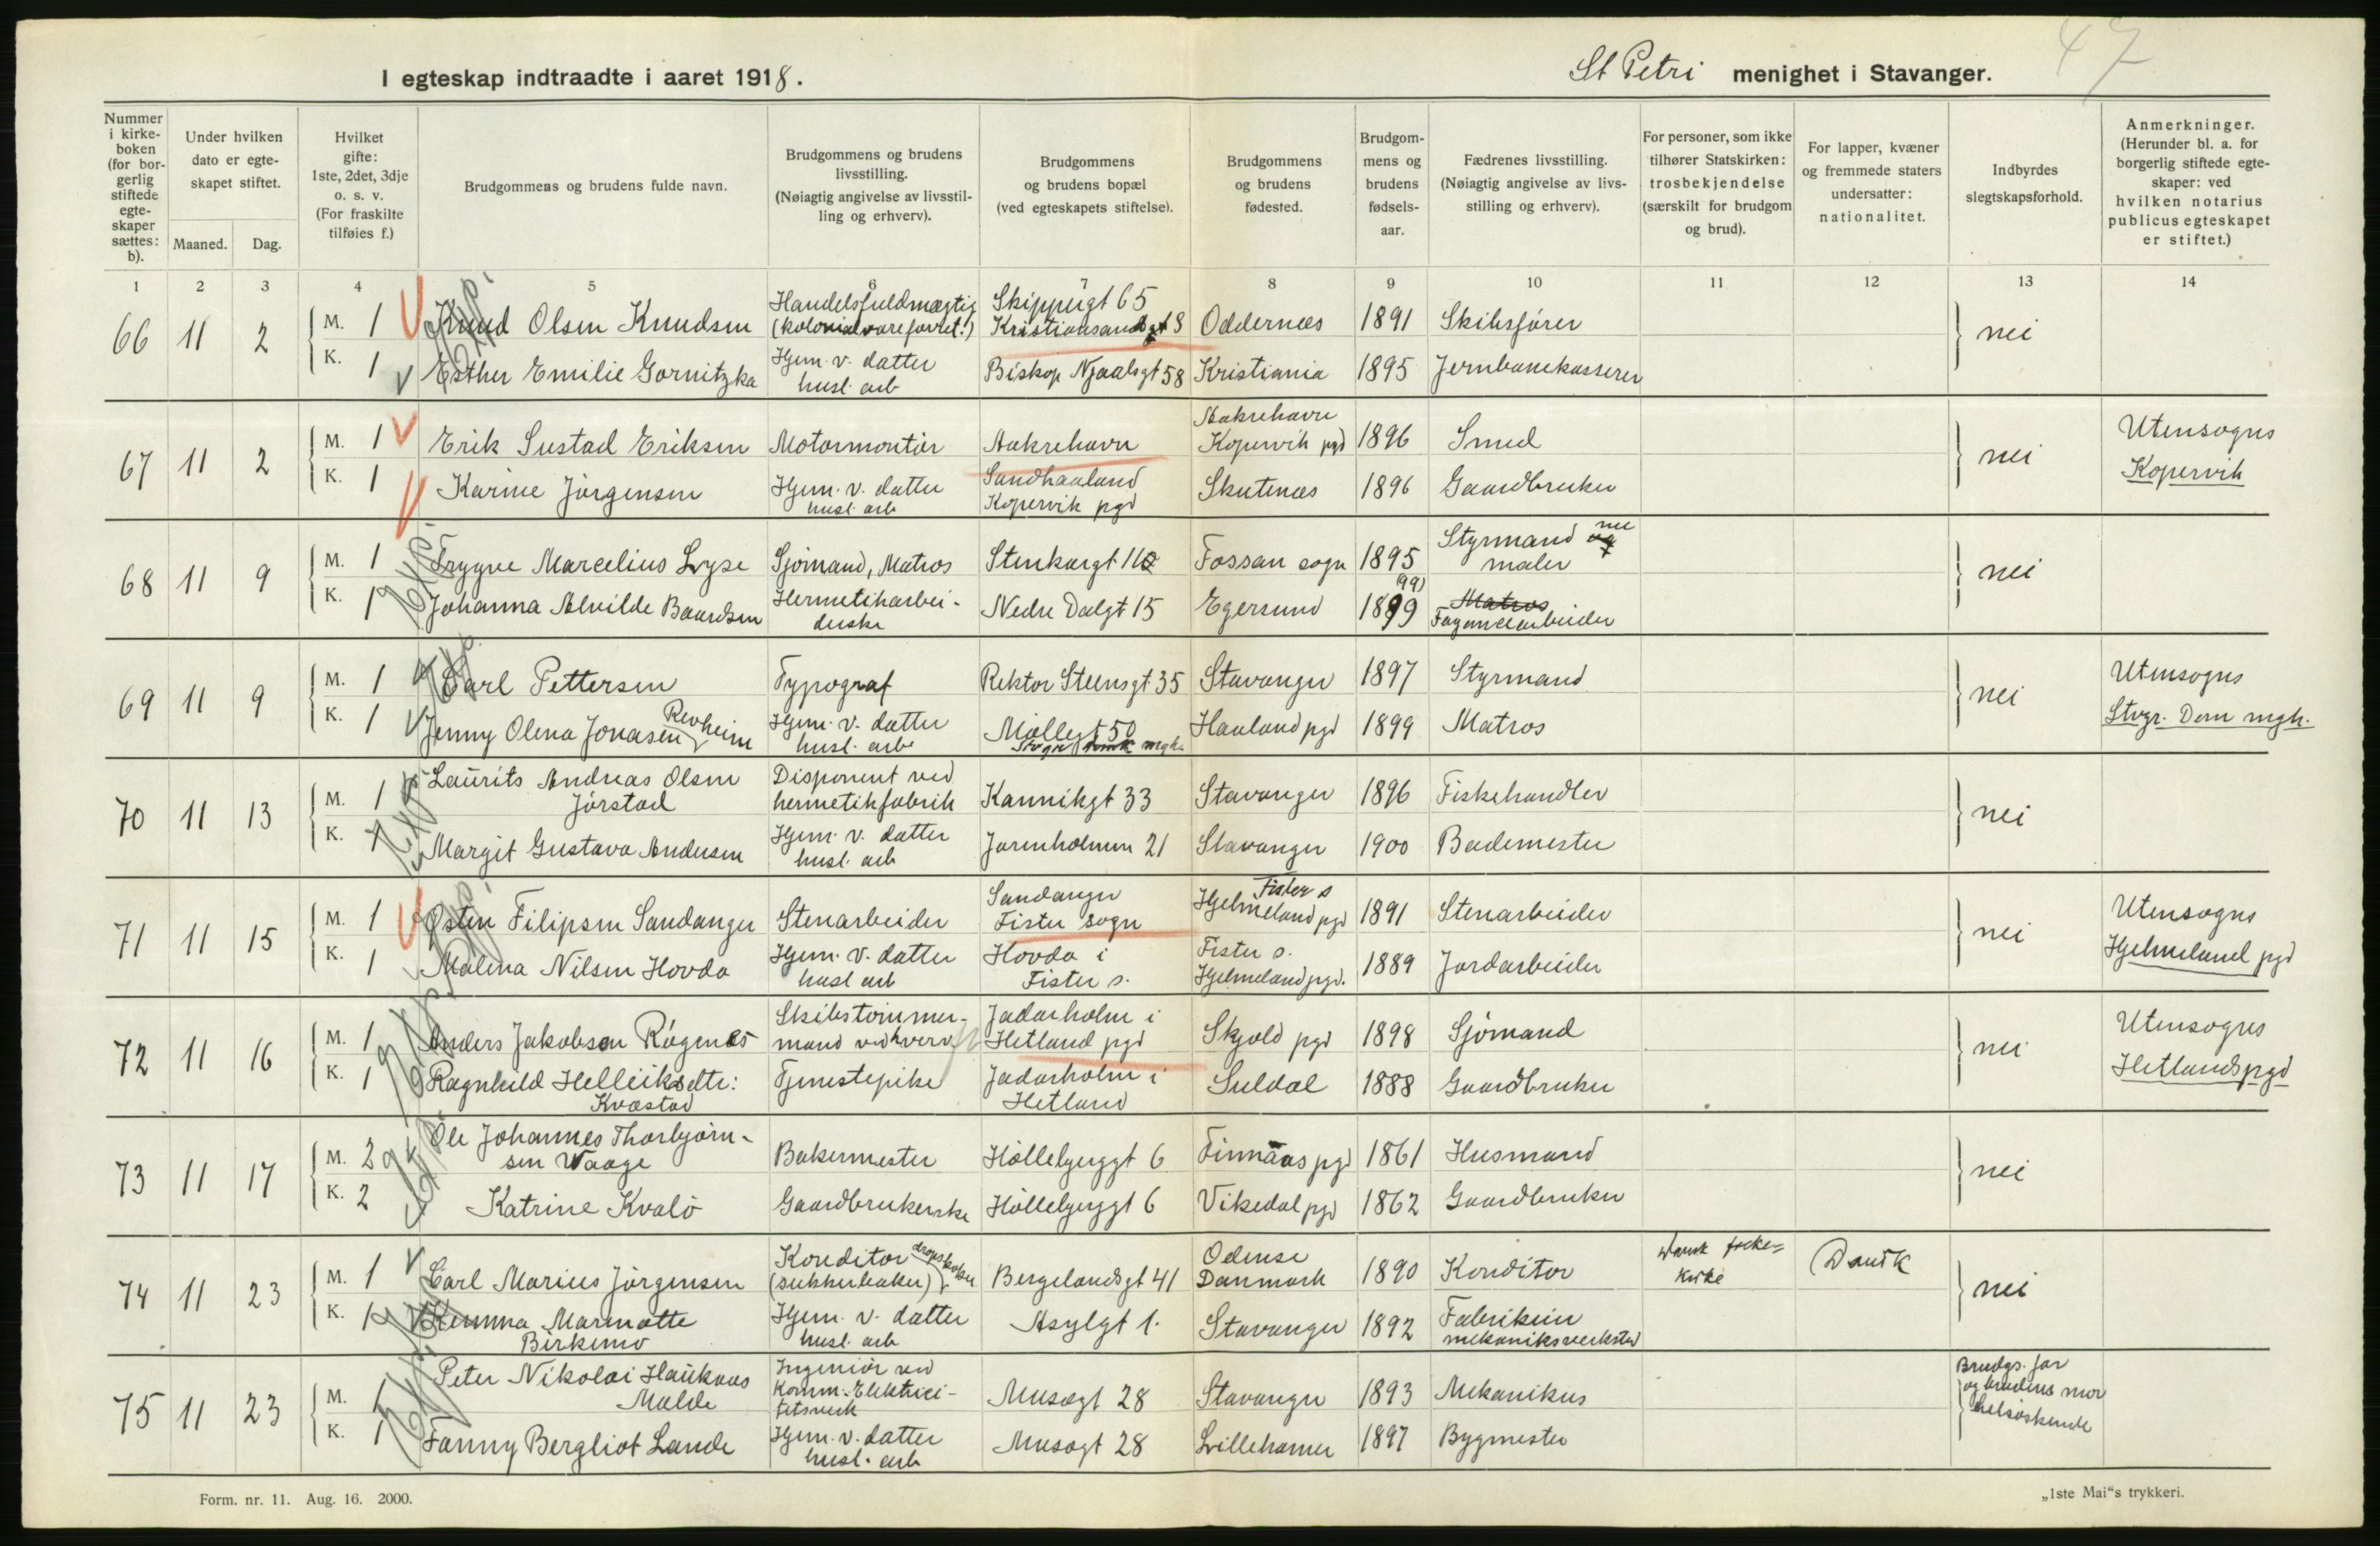 47
I egteskap indtraadte i aaret 1918. St Petri menighet i Stavanger.
Nummer i kirkeboken (for borgerlig stiftede egteskaper sættes: b).
Under hvilken dato er egteskapet stiftet.
Maaned. Dag.
Hvilket gifte: 1ste, 2det, 3dje o. s. v. (For fraskilte tilføies f.)
Brudgommens og brudens fulde navn.
Brudgommens og brudens livsstilling. (Nøiagtig angivelse av livsstilling og erhverv).
Brudgommens og brudens bopæl (ved egteskapets stiftelse).
Brudgommens og brudens fødested.
Brudgommens og brudens fødselsaar.
Fædrenes livsstilling. (Nøiagtig angivelse av livsstilling og erhverv).
For personer, som ikke tilhører Statskirken: trosbekjendelse (særskilt for brudgom og brud).
For lapper, kvæner og fremmede staters undersatter: nationalitet.
Indbyrdes slegtskapsforhold.
Anmerkninger. (Herunder bl. a. for borgerlig stiftede egteskaper: ved hvilken notarius publicus egteskapet er stiftet.)
1 2 3 4 5 6 7 8 9 10 11 12 13 14
66 11 2 M. 1 Knud Olsen Knudsen Handelsfuldmægtig (kolonialvareforret.) Skippergt 65 Kristiansand Oddernes 1891 Skibsfører nei
K. 1 Esther Emilie Gornitzka Hjem. v. datter husl. arb Biskop Njaalsgt 58 Kristiania 1895 Jernbanekasserer
67 11 2 M. 1 Erik Sustad Eriksen Motormontør Aakrehavn Aakrehavn Kopervik pgd 1896 Smed nei Utensogns Kopervik
K. 1 Karine Jörgensen Hjem. v. datter husl. arb Sandhaaland Kopervik pgd Skutenes 1896 Gaardbruker
68 11 9 M. 1 Trygve Marcelius Lyse Sjömand, Matros Stenkargt Fossan sogn 1895 Styrmand nu maler nei
K. 1 Johanna Alvilde Baardsen Hermetikarbeiderske Nedre Dalgt 15 Egersund 1899 (99) Matros Fayancearbeider
69 11 9 M. 1 Carl Pettersen Typograf Rektor Steensgt 35 Stavanger 1897 Styrmand nei Utensogns Stvgr. Dom mgh.
K. 1 Jenny Olena Jonasen Revheim Hjem. v. datter husl. arb Möllegt 50 Stvgr Domk mgh. Haaland pgd 1899 Matros
70 11 13 M. 1 Laurits Andreas Olsen Jörstad Disponent ved hermetikfabrik Kannikgt 33 Stavanger 1896 Fiskehandler nei
K. 1 Margit Gustava Andersen Hjem. v. datter husl. arb Jorenholmen 21 Stavanger 1900 Bademester
71 11 15 M. 1 Østen Filipsen Sandanger Stenarbeider Sandanger Fister sogn Fister s Hjelmeland pgd 1891 Stenarbeider nei Utensogns Hjelmeland pgd
K. 1 Malena Nilsen Hovda Hjem. v. datter husl arb Hovda i Fister s. Fister s. Hjelmeland pgd. 1889 Jordarbeider
72 11 16 M. 1 Anders Jakobsen Rögenes Skibstømmermand ved hverv Jadarholm i Hetland pgd Skjold pgd 1898 Sjömand nei Utensogns Hetlands pgd
K. 1 Ragnhild Helleiksdtr: Kvæstad Tjenestepike Jadarholm i Hetland Suldal 1888 Gaardbruker
73 11 17 M. 2 Ole Johannes Thorbjörnsen Waage Bakermester Höllebyggt 6 Finnaas pgd 1861 Husmand nei
K. 2 Katrine Kvalö Gaardbrukerske Höllebyggt 6 Vikedal pgd 1862 Gaardbruker
74 11 23 M. 1 Carl Marius Jörgensen Konditor (sukkerbaker) dropskoker Bergelandsgt 41 Odense Danmark 1890 Konditor Dansk folkekirke Dansk nei
K. 1 Kemma Marinatte Birkemo Hjem. v. datter husl. arb Asylgt 1. Stavanger 1892 Fabrikeier mekaniksverksted
75 11 23 M. 1 Peter Nikolai Haukaas Malde Ingeniör ved Komm. Elektricitetsverk Musægt 28 Stavanger 1893 Mekanikus Brudgs. far og brudens mor helsöskende
K. 1 Fanny Bergliot Lande Hjem. v. datter husl. arb Musægt 28 Lillehamer 1897 Bygmester
Form. nr. 11. Aug. 16. 2000.
„1ste Mai“s trykkeri.